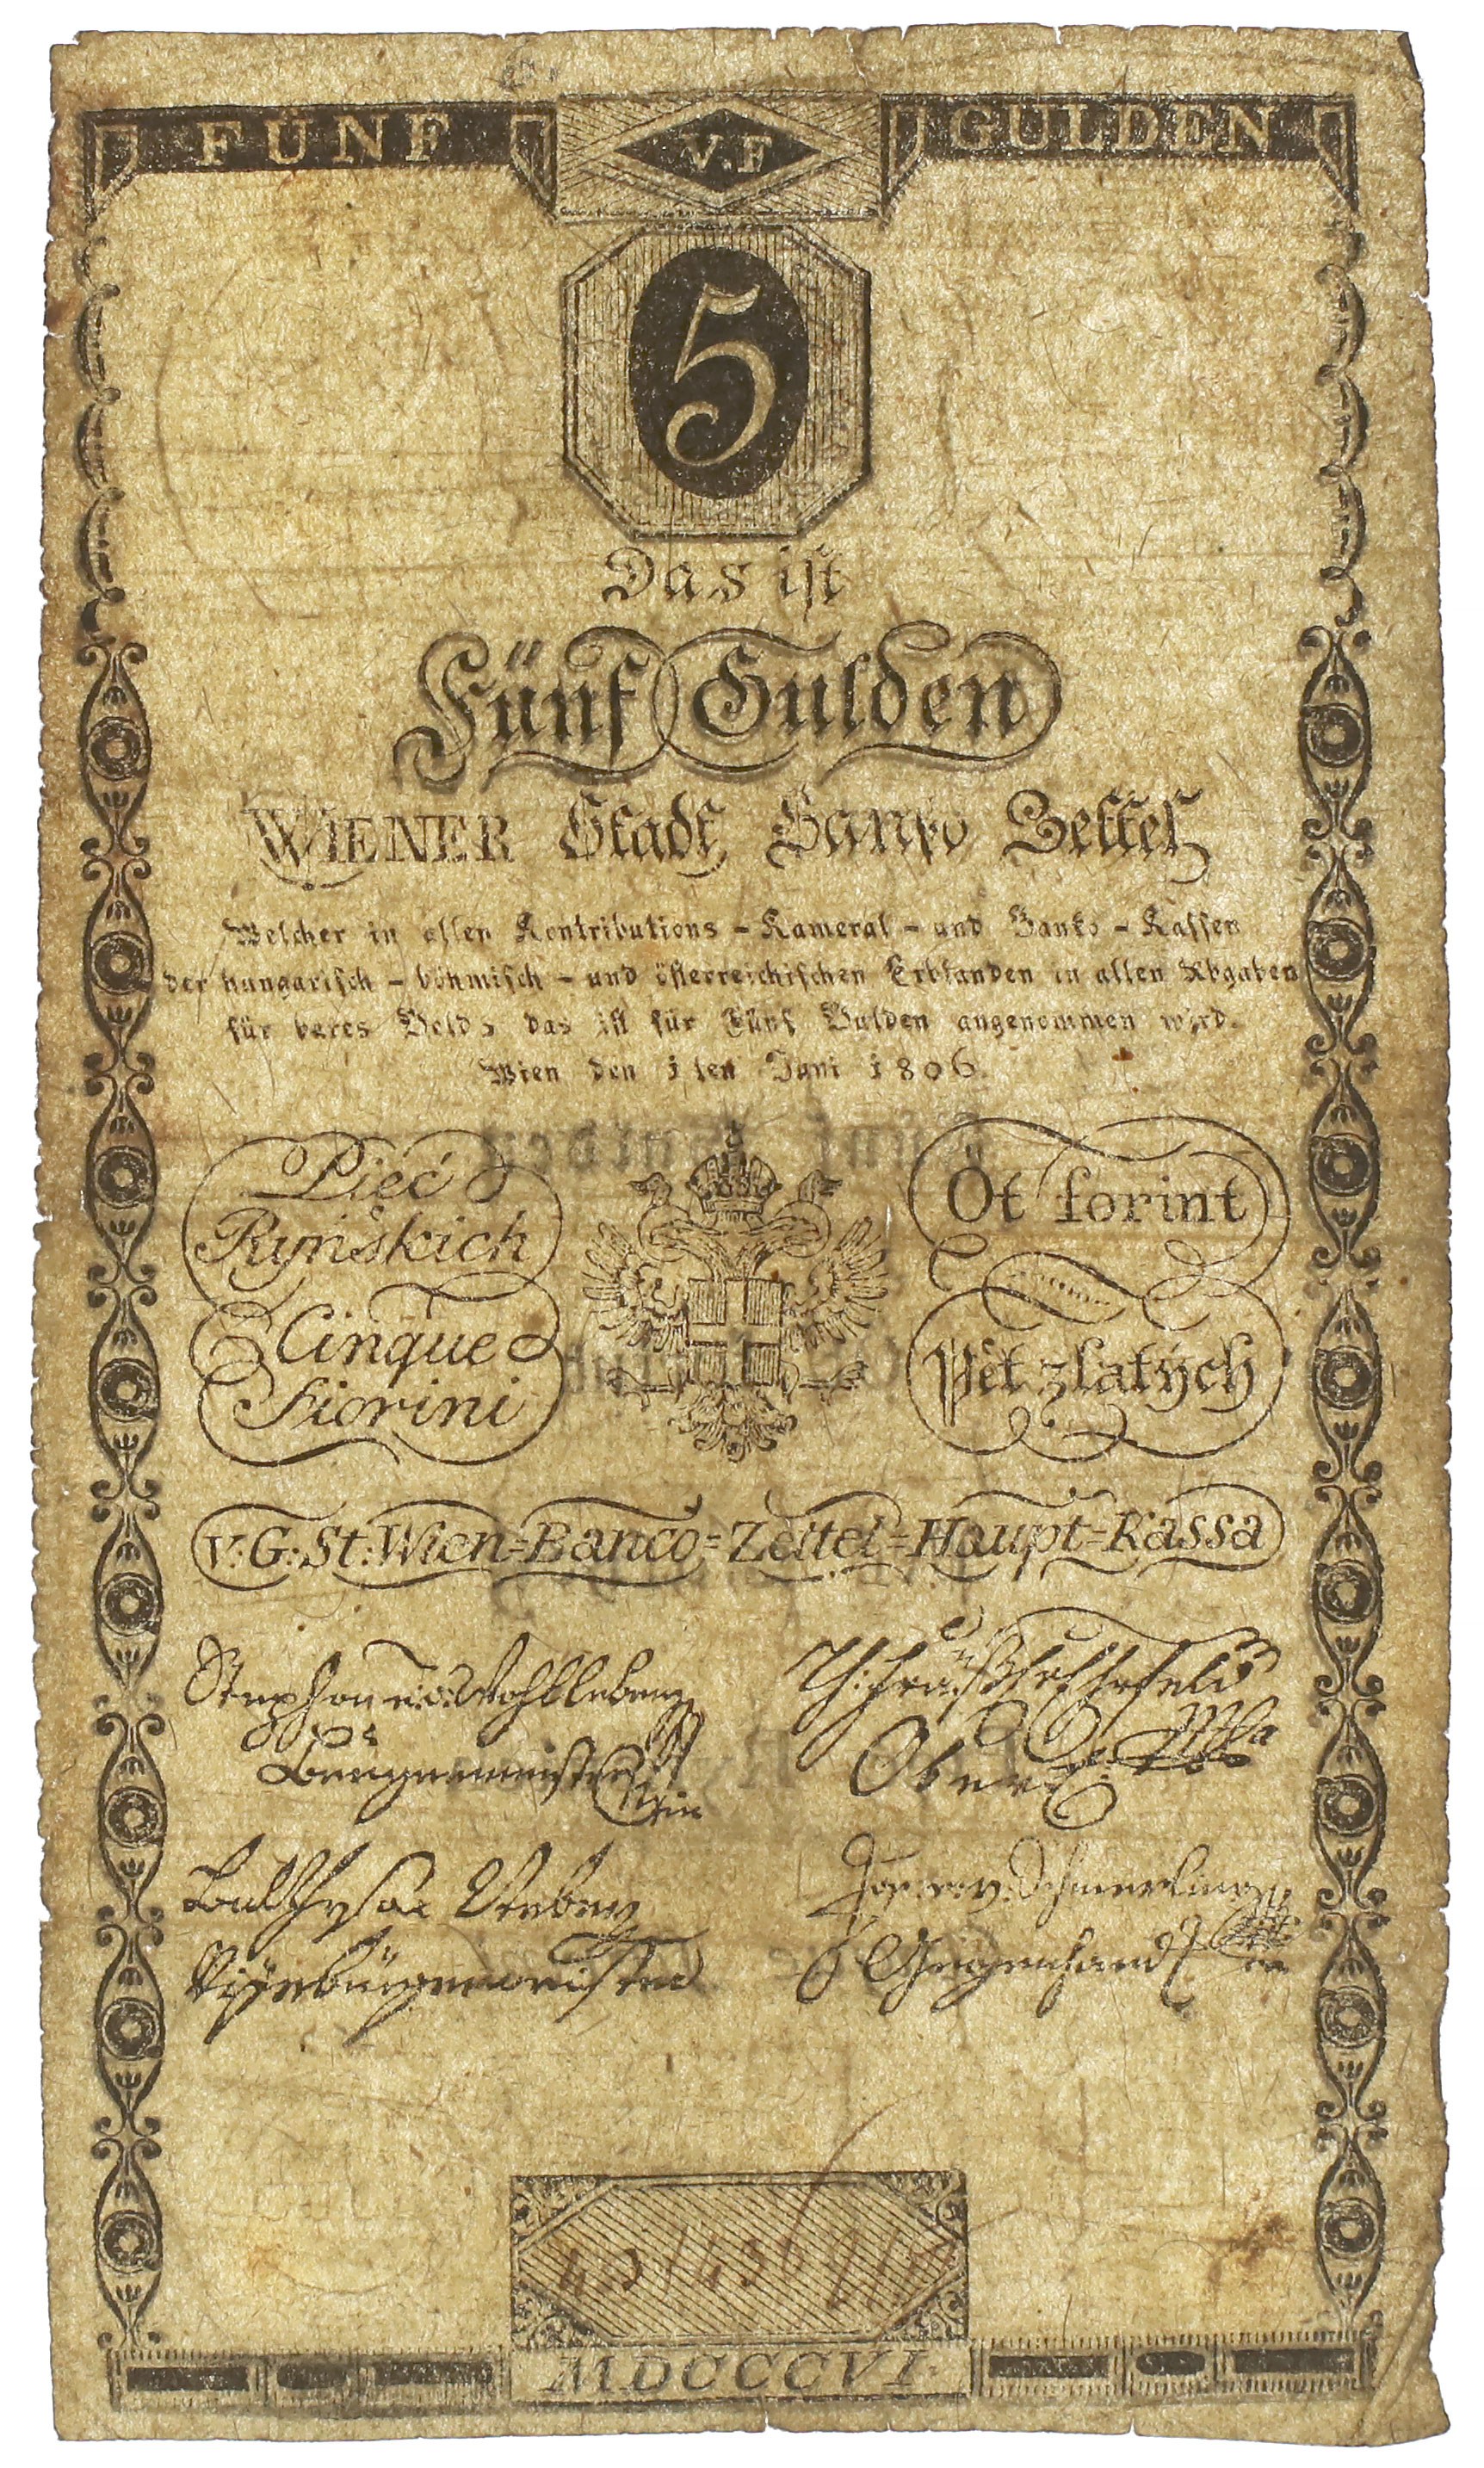 FÜNF V.F GULDEN
5
Das ist
Fünf Gulden
WIENER Stadt Banko Zettel
Welcher in allen Kontributions - Kameral - und Banko - Kassen
der hungarisch - böhmisch - und österreichischen Erblanden in allen Abgaben
für bares Geld, das ist für Fünf Gulden angenommen wird.
Wien den 1ten Juni 1806.
Pięć
Ryńskich
Öt forint
Cinque
Fiorini
Pět zlatých
V: G: St: Wien=Banco=Zettel=Haupt=Kassa
Stephan
Burgermeister
Ober
Vizebürgermeister
Gegenhand
MDCCCVI.